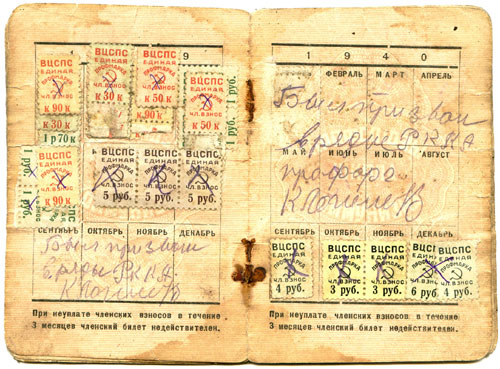 9
ВЦСПС ЕДИНАЯ ПРОФМАРКА ЧЛ. ВЗНОС К 90 К
К 30 К
1 р 70 к
ВЦСПС ЕДИНАЯ ПРОФМАРКА ЧЛ. ВЗНОС К 30 К
ВЦСПС ЕДИНАЯ ПРОФМАРКА ЧЛ. ВЗНОС К 50 К
К 90 К
ВЦСПС ЕДИНАЯ ПРОФМАРКА ЧЛ. ВЗНОС К 50 К
1 руб. 1 руб.
1 руб. 1 руб.
К 90 К
ВЦСПС ЕДИНАЯ ПРОФМАРКА ЧЛ. ВЗНОС 5 руб.
ВЦСПС ЕДИНАЯ ПРОФМАРКА ЧЛ. ВЗНОС 5 руб.
ВЦСПС ЕДИНАЯ ПРОФМАРКА ЧЛ. ВЗНОС 5 руб.
СЕНТЯБРЬ ОКТЯБРЬ НОЯБРЬ ДЕКАБРЬ
Был призван
в ряды РККА
При неуплате членских взносов в течение
3 месяцев членский билет недействителен.
1 9 4 0
ФЕВРАЛЬ МАРТ АПРЕЛЬ
Был призван
в ряды РККА
МАЙ ИЮНЬ ИЮЛЬ АВГУСТ
профорг
СЕНТЯБРЬ ОКТЯБРЬ НОЯБРЬ ДЕКАБРЬ
ВЦСПС ЕДИНАЯ ПРОФМАРКА ЧЛ. ВЗНОС 4 руб.
ВЦСПС ЕДИНАЯ ПРОФМАРКА ЧЛ. ВЗНОС 3 руб.
ВЦСПС ЕДИНАЯ ПРОФМАРКА ЧЛ. ВЗНОС 3 руб.
ВЦСПС ЕДИНАЯ ПРОФМАРКА ЧЛ. ВЗНОС 6 руб.
ВЦСПС ЕДИНАЯ ПРОФМАРКА ЧЛ. ВЗНОС 4 руб.
При неуплате членских взносов в течение
3 месяцев членский билет недействителен.